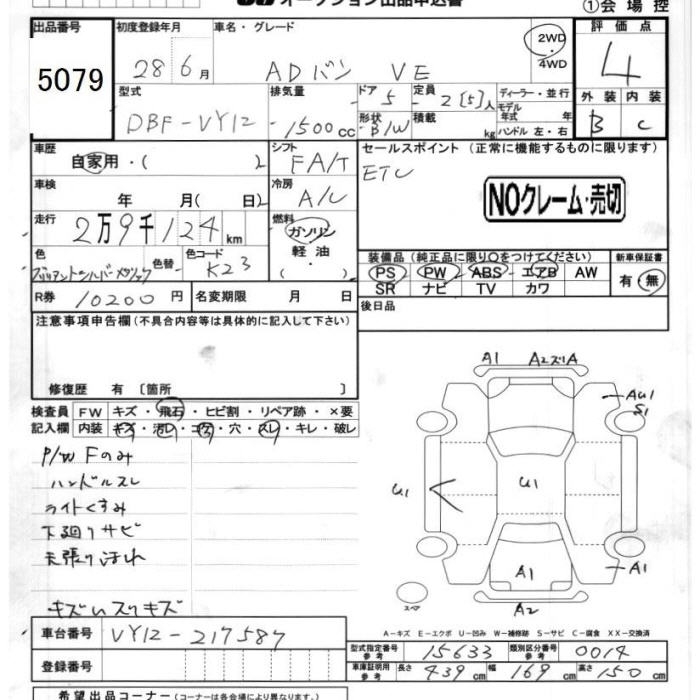 オークション出品申込書
①会場控
出品番号 初度登録年月 車名・グレード 評価点
5079 28年6月 ADバン VE 2WD・4WD 4
型式 排気量 ドア 5 定員 2[5]人 ディーラー・並行 外装 内装
DBF-VY12 1500cc 形状 B/W 積載 kg モデル年式 年式 ハンドル 左・右 B C
車歴 シフト セールスポイント (正常に機能するものに限ります)
自家用・( ) FA/T ETC
車検 冷房
年 月( 日) A/C NOクレーム・売切
走行 燃料
2万9千124km ガソリン・軽油・( )
色 色替 色コード 装備品(純正品に限り○をつけてください) 新車保証書
K23 PS PW ABS エアB AW 有・無
SR ナビ TV カワ
R券 10200円 名変期限 月 日 後日品
注意事項申告欄(不具合内容等は具体的に記入して下さい)
修復歴 有 〔箇所 〕
検査員記入欄 FW キズ・飛石・ヒビ割・リペア跡・×要
内装 キズ・汚レ・コゲ・穴・スレ・キレ・破レ
P/W Fのみ
ハンドルスレ
ライトくすみ
下廻りサビ
天張り汚れ
キズ凹スリキズ
A1 A2ズリA
AU1
S1
U1 U1
A1 A1
A2
スペア
A-キズ E-エクボ U-凹み W-補修跡 S-サビ C-腐食 XX-交換済
車台番号 VY12-217587
型式指定番号 参考 15633 類別区分番号 参考 0014
登録番号
車庫証明用 参考 長さ 439cm 幅 169cm 高さ 150cm
希望出品コーナー (コーナーは各会場により異なります。)